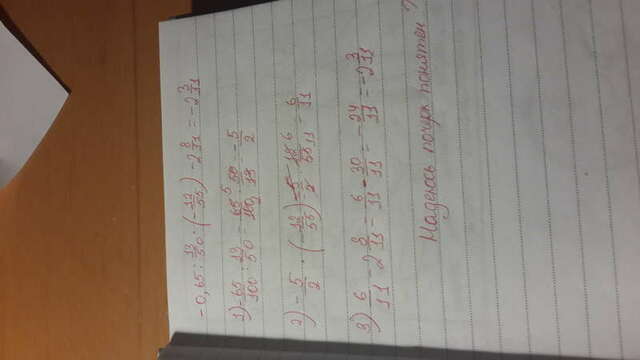 -0,65 : 13/50 · (-12/55) - 2 8/11 = -2 3/11
1) -65/100 : 13/50 = -65/100 · 50/13 = -5/2
2) -5/2 · (-12/55) = 5/2 · 12/55 = 6/11
3) 6/11 - 2 8/11 = 6/11 - 30/11 = -24/11 = -2 3/11
Надеюсь почерк понятен?